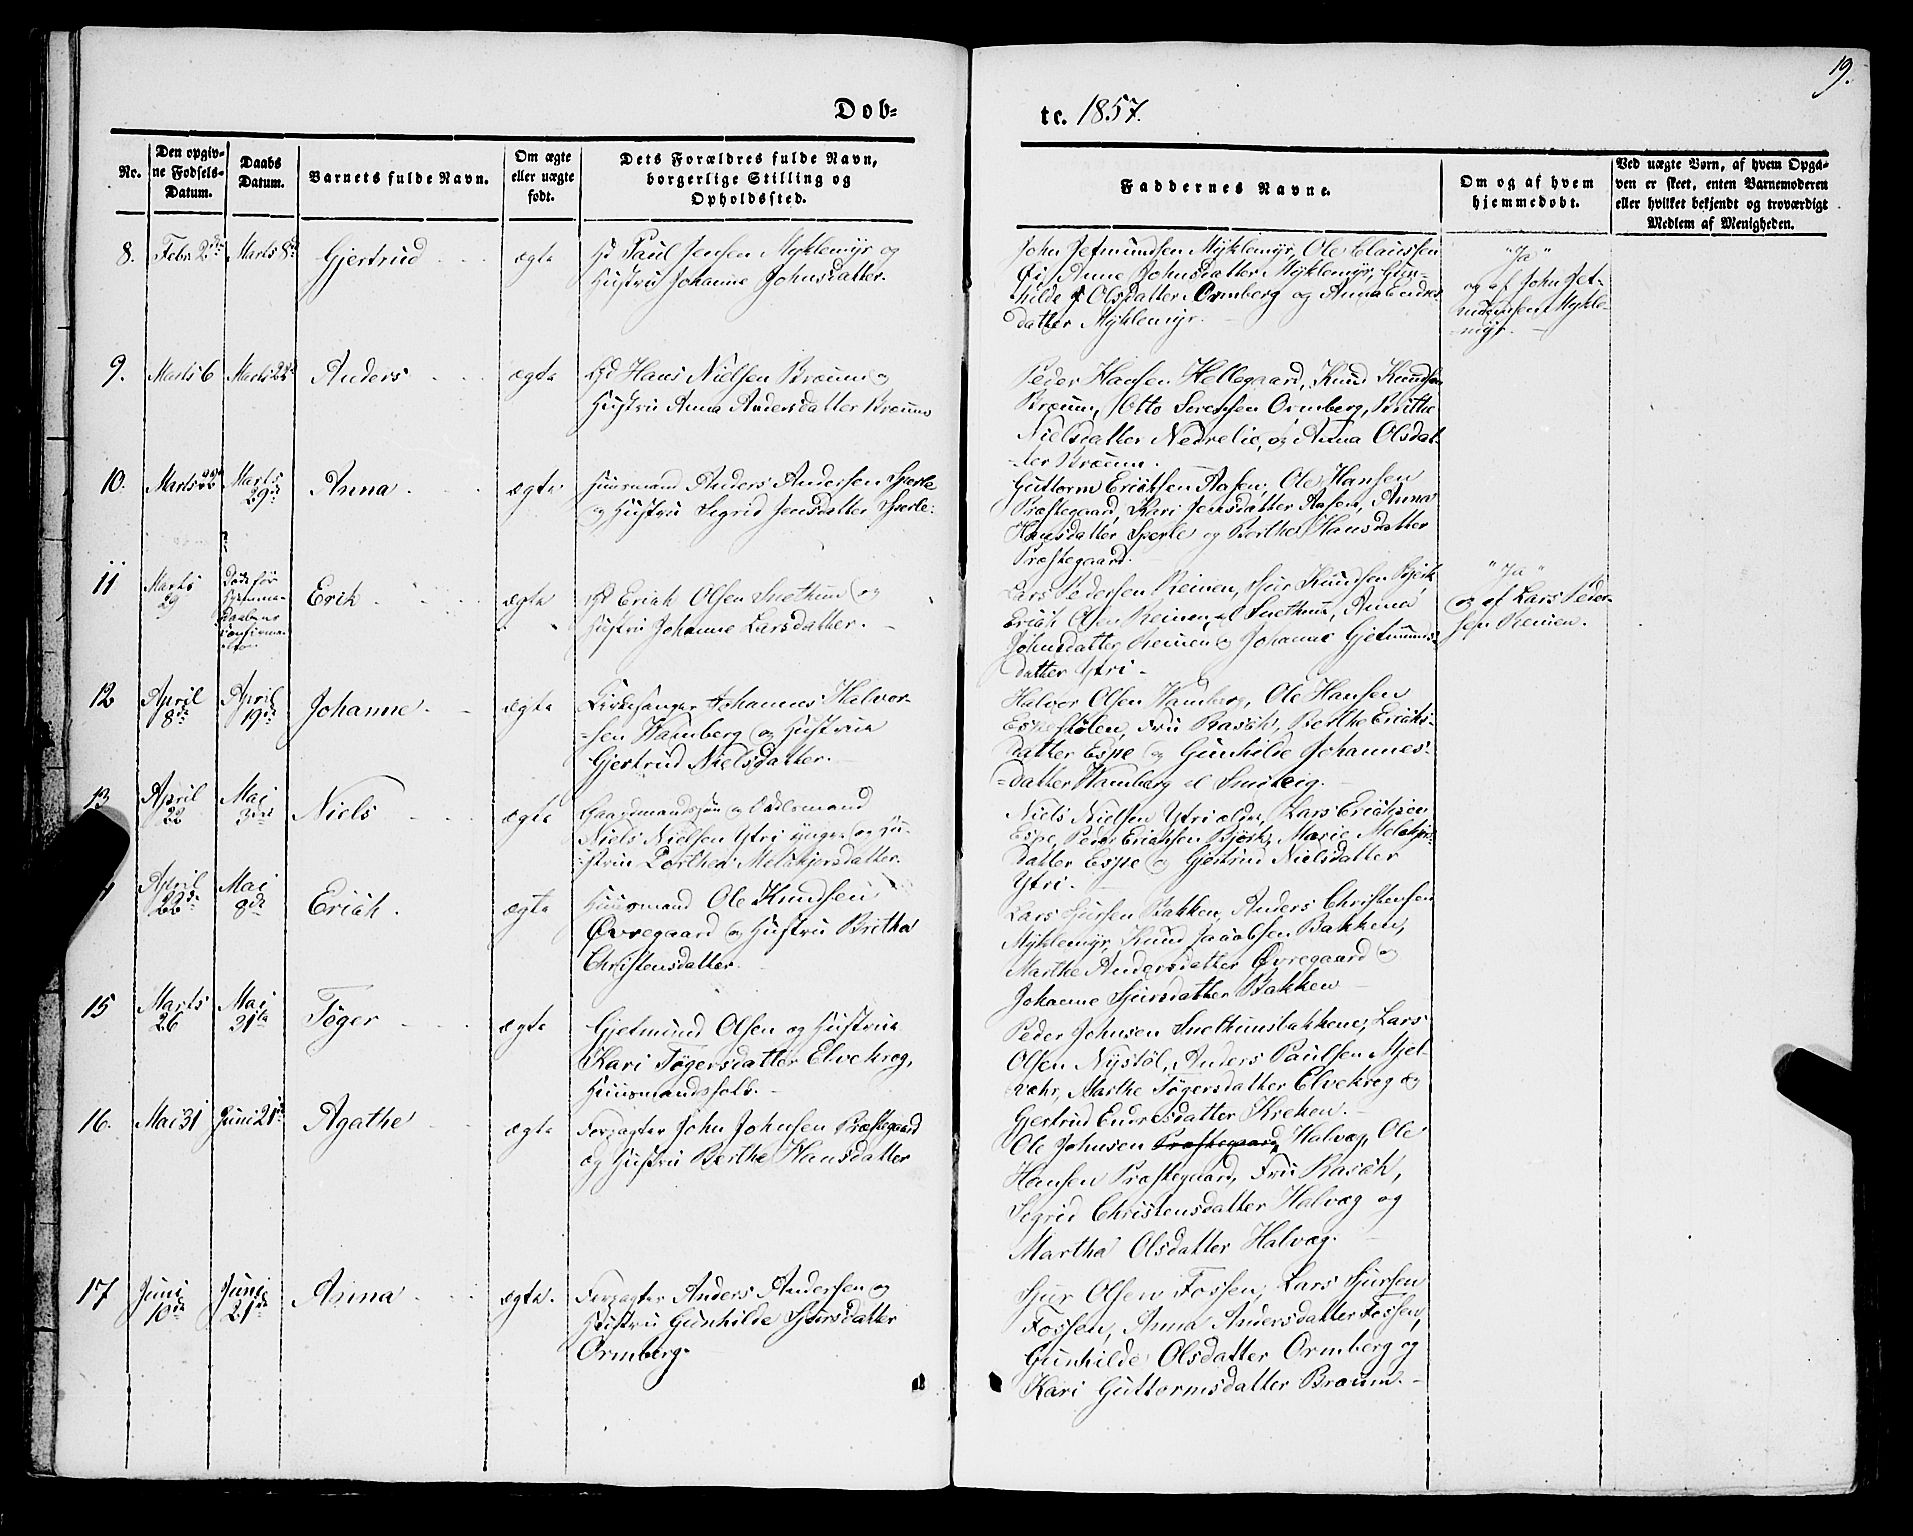 19.
Døb-
te. 1857.
Nr.
Den opgiv-
ne Fødsels-
Datum.
Daabs
Datum.
Barnets fulde Navn.
Om ægte
eller uægte
født.
Dets Forældres fulde Navn,
borgerlige Stilling og
Opholdssted.
Faddernes Navne.
Om og af hvem
hjemmedøbt.
Ved uægte Børn, af hvem Opga-
ven er skeet, enten Barnemoderen
eller hvilket bekjendt og troværdigt
Medlem af Menigheden.
8. Febr. 2den Marts 8de Gjertrud ægte
Gd Paul Jensen Myklemyr og
Hustru Johanne Johnsdatter.
John Jetmundsen Myklemyr, Ole Claussen
Øi, Anne Johnsdatter Myklemyr, Gun-
hilde Olsdatter Ormberg og Anna Endres
datter Myklemyr.
"Ja"
og af John Jet-
mundsen Mykle-
myr.
9. Marts 6 Marts 22 Anders ægte
Gd Hans Nielsen Bræum og
Hustru Anna Andersdatter Bræum
Peder Hansen Hellegaard, Knud Knudsen
Bræum, Otto Sørensen Ormberg, Brithe
Nielsdatter Nedrelie, og Anna Olsdat-
ter Bræum.
10. Marts 22 Marts
29de Anna ægte
Huusmand Anders Andersen Sperle
og Hustru Sigrid Jensdatter Sperle.
Guttorm Erichsen Aasen, Ole Hansen
Præstegaard, Kari Jensdatter Aasen, Anna
Hansdatter Sperle og Berthe Hansdatter
Præstegaard.
11 Marts
29
Døde før
Hjemme-
daaben
Erik ægte
Gd Erich Olsen Snethun og
Hustru Johanne Larsdatter.
Lars Pedersen Reinen, Sjur Knudsen Bjørk
Erich Olsen Reinen el Snethun, Anna
Johnsdatter Reinen og Johanne Gjetmunds-
datter Ytri.
"Ja"
og af Lars Peder-
sen Reinen.
12 April
8de April
19de Johanne ægte
Kirkesanger Johannes Halvor-
sen Wamberg og Hustrue
Gjertrud Nielsdatter.
Halvor Olsen Wamberg, Ole Hansen
Espestølen, Fru Rasch, Berthe Erichs-
datter Espe og Gunhilde Johannes-
datter Wamberg el Sneteig.
13 April
22 Mai
3die Niels ægte
Gaardmandssøn og Lodsmand
Niels Nielsen Ytri yngre og Hu-
stru Dorthea Melchjorsdatter.
Niels Nielsen Ytri eldre, Lars Erichsen
Espe, Peder Erichsen Bjørk, Marie Melchjor-
datter Espe og Gjertrud Nielsdatter
Ytri.
April
22de Mai
8de Erich. ægte
Huusmand Ole Knudsen
Øvregaard og Hustru Brithe
Christensdatter.
Lars Sjursen Bakken, Anders Christensen
Myklemyr, Knud Jacobsen Bakken,
Marthe Andersdatter Øvregaard og
Johanne Sjursdatter Bakken
15 Marts
26 Mai
31te Tøger ægte
Gjetmund Olsen og Hustrue
Kari Tøgersdatter Elvekrog,
Huusmandsfolk.
Peder Johnsen Snethunsbakkene, Lars
Olsen Nystøl, Anders Paulsen Mjel-
vær, Marthe Tøgersdatter Elvekrog og
Gjertrud Endresdatter Kreken.
16. Mai 31 Juni 21de Agathe ægte
Forpagter John Johnsen Præstegaard
og Hustru Berthe Hansdatter
Ole Johnsen Præstegaard, Halvæg, Ole
Hansen Præstegaard, Fru Rasch,
Sigrid Christensdatter Halvæg og
Martha Olsdatter Halvæg.
17 Juni
10de Juni
21de Anna ægte.
Forpagter Anders Andersen og
Hustru Gunhilde Sjursdatter
Ormberg.
Sjur Olsen Fossen, Lars Sjursen
Fossen, Anna Andersdatter Fossen,
Gunhilde Olsdatter Ormberg og
Kari Guttormsdatter Bræum.